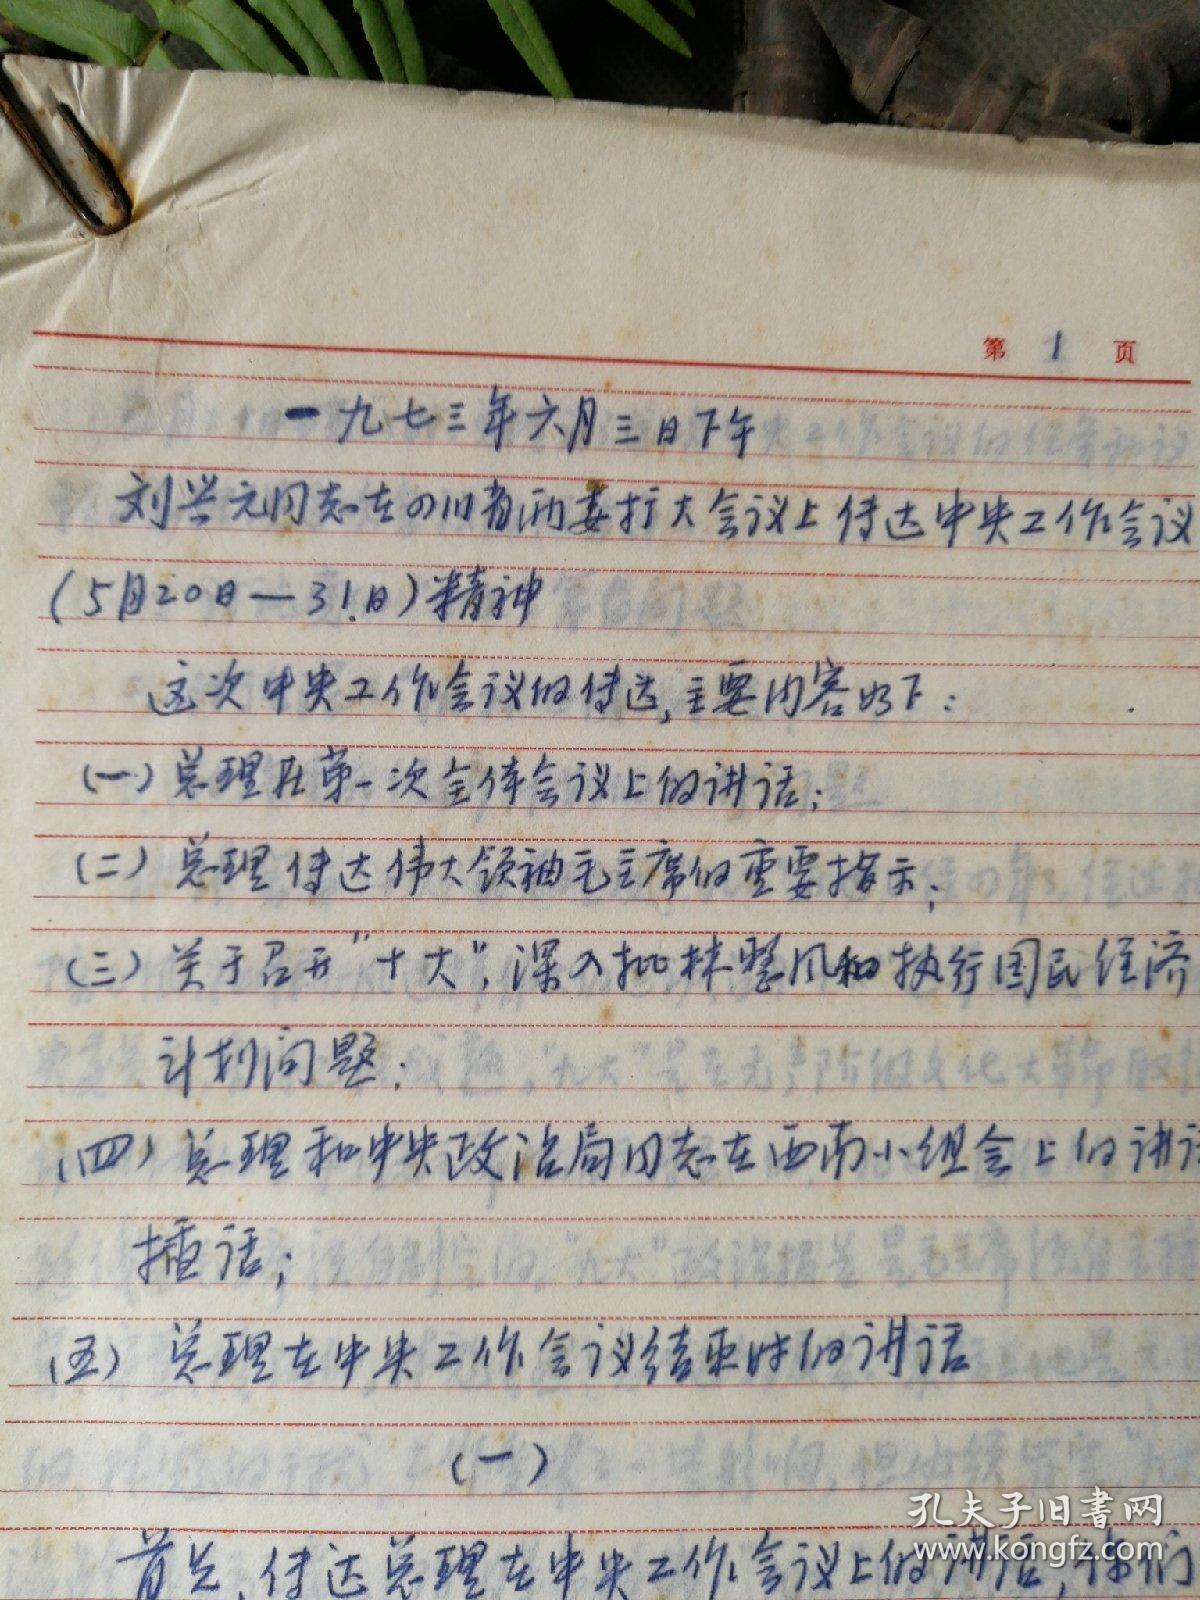 第 1 页
一九七三年六月三日下午
刘兴元同志在四川省两委扩大会议上传达中央工作会议
(5月20日—31日)精神
这次中央工作会议的传达,主要内容如下:
(一)总理在第一次全体会议上的讲话;
(二)总理传达伟大领袖毛主席的重要指示;
(三)关于召开"十大",深入批林整风和执行国民经济
计划问题;
(四)总理和中央政治局同志在西南小组会上的讲话
插话;
(五)总理在中央工作会议结束时的讲话
(一)
首先,传达总理在中央工作会议上的讲话,
孔夫子旧书网
www.kongfz.com